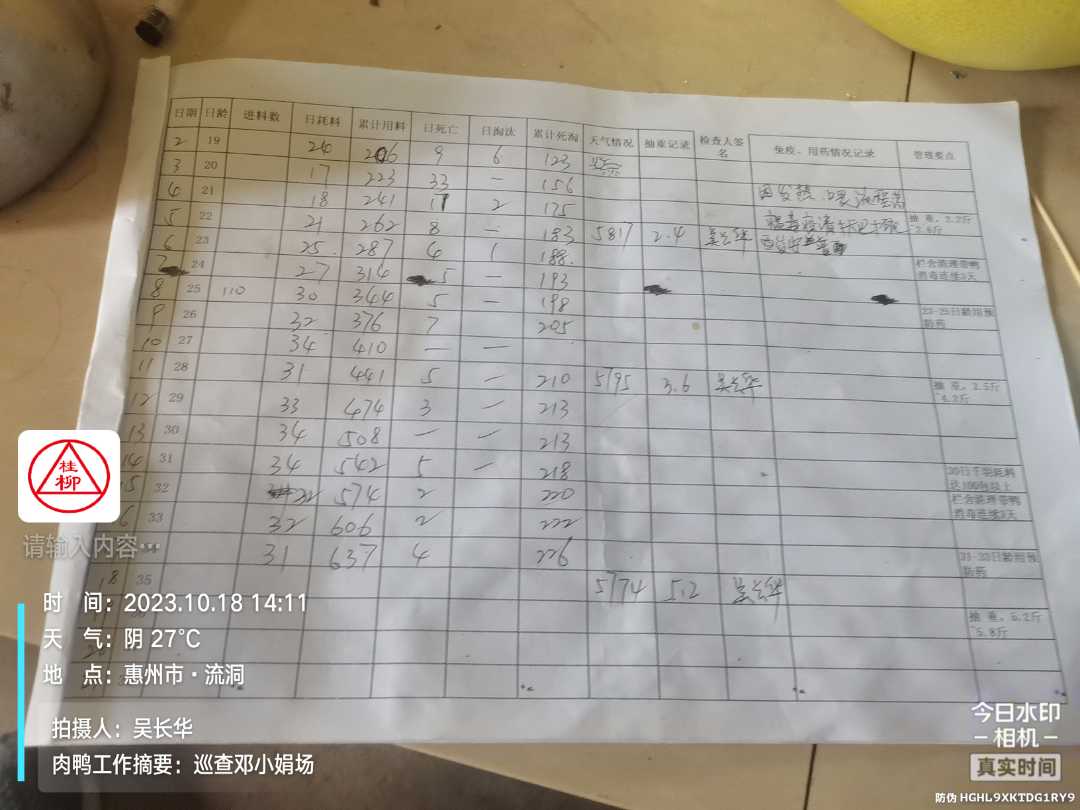 日期 日龄 进料数 日耗料 累计用料 日死亡 日淘汰 累计死淘 天气情况 抽重记录 检查人签名 免疫、用药情况记录 管理要点
2 19 20 206 9 6 123
3 20 17 223 33 — 156
4 21 18 241 17 2 175
5 22 21 262 8 — 183 5817 2.4 吴长华 抽重，2.2斤~2.6斤
6 23 25 287 4 1 188
7 24 27 314 5 — 193 栏舍清理带鸭消毒连续3天
8 25 110 30 344 5 — 198
9 26 32 376 7 205 23-25日龄用预防药
10 27 34 410 — —
11 28 31 441 5 — 210 5795 3.6 吴长华 抽重，3.5斤~4.2斤
12 29 33 474 3 — 213
13 30 34 508 — — 213
14 31 34 542 5 — 218
15 32 32 574 2 220 栏舍清理带鸭消毒连续3天
6 33 32 606 2 222
31 637 4 226 31-33日龄用预防药
18 35 5774 5.2 吴长华
抽重，5.2斤~5.8斤
桂柳
请输入内容…
时 间：2023.10.18 14:11
天 气：阴 27℃
地 点：惠州市·流洞
拍摄人：吴长华
肉鸭工作摘要：巡查邓小娟场
今日水印
相机
真实时间
防伪 HGHL9XKTDG1RY9